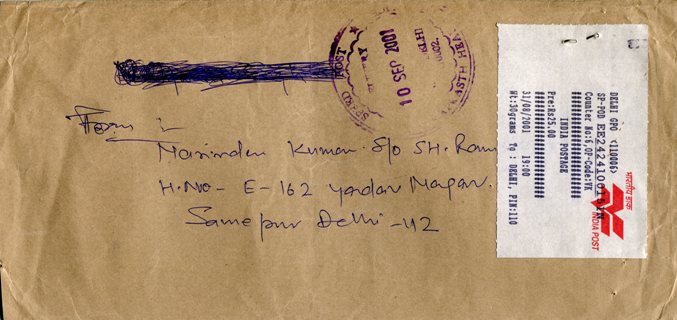 From :-
Narinder Kumar S/o SH. Ram
H.No- E-162 Yadav Nagar.
Samepur Delhi-42
SPEED POST
10 SEP 2001
DELHI GPO <110006>
SP-POD
Counter No:6,OP-Code:VK
INDIA POSTAGE
Pre:Rs25.00
31/08/2001 19:00
Wt:30grams To : DELHI, PIN:110
भारतीय डाक
INDIA POST